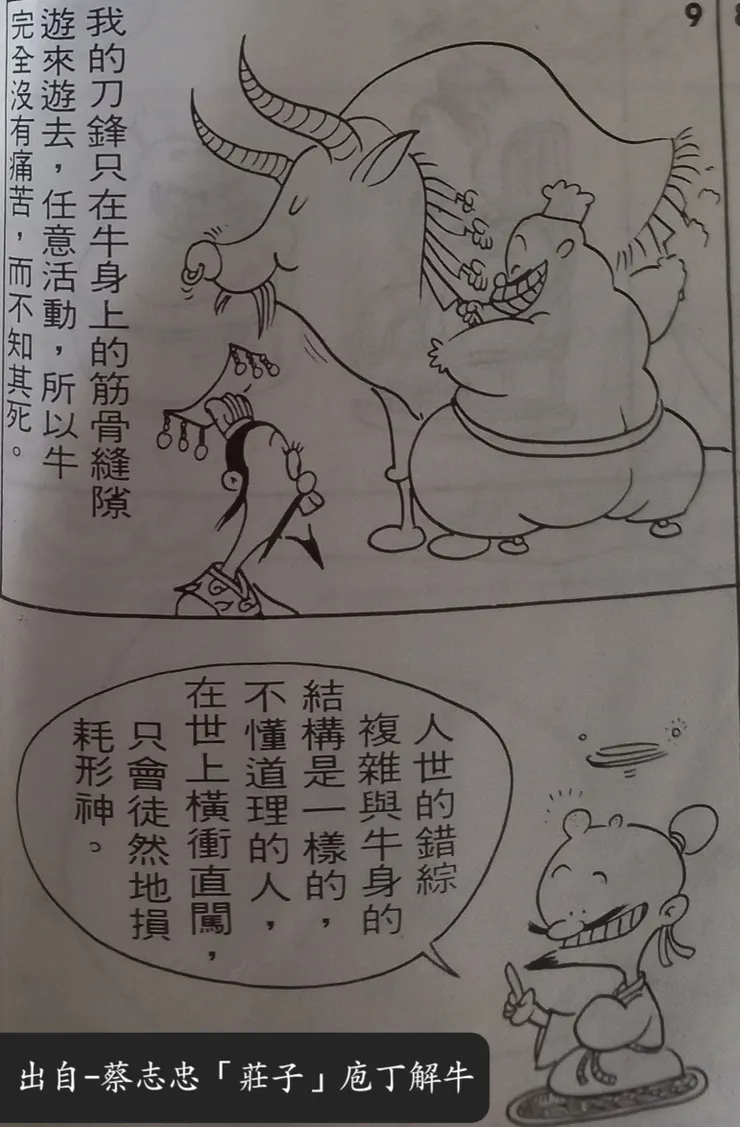 9
我的刀鋒只在牛身上的筋骨縫隙
遊來遊去，任意活動，所以牛
完全沒有痛苦，而不知其死。
人世的錯綜
複雜與牛身的
結構是一樣的，
不懂道理的人，
在世上橫衝直闖，
只會徒然地損
耗形神。
出自-蔡志忠「莊子」庖丁解牛